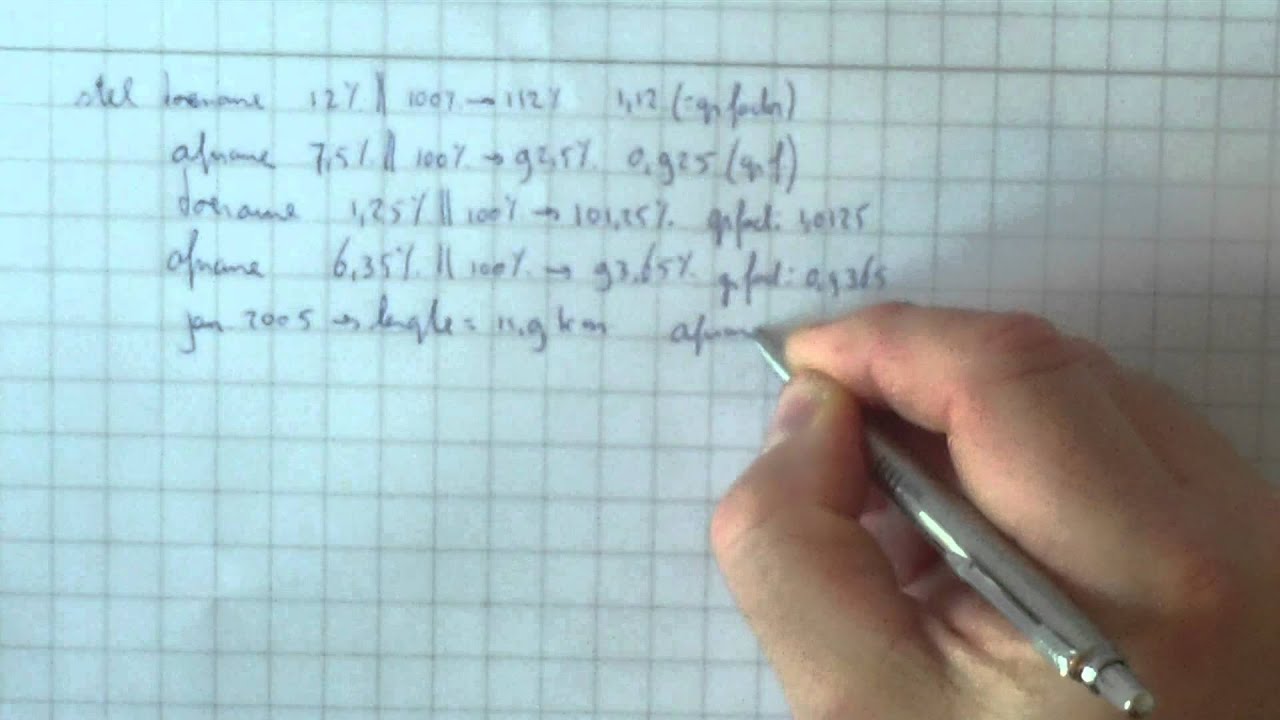 stel toename 12% || 100% → 112% 1,12 (=gr factor)
afname 7,5% || 100% → 92,5% 0,925 (gr.f)
toename 1,25% || 100% → 101,25% gr fact: 1,0125
afname 6,35% || 100% → 93,65% gr fact: 0,9365
jan 2005 → lengte = 11,9 km afname